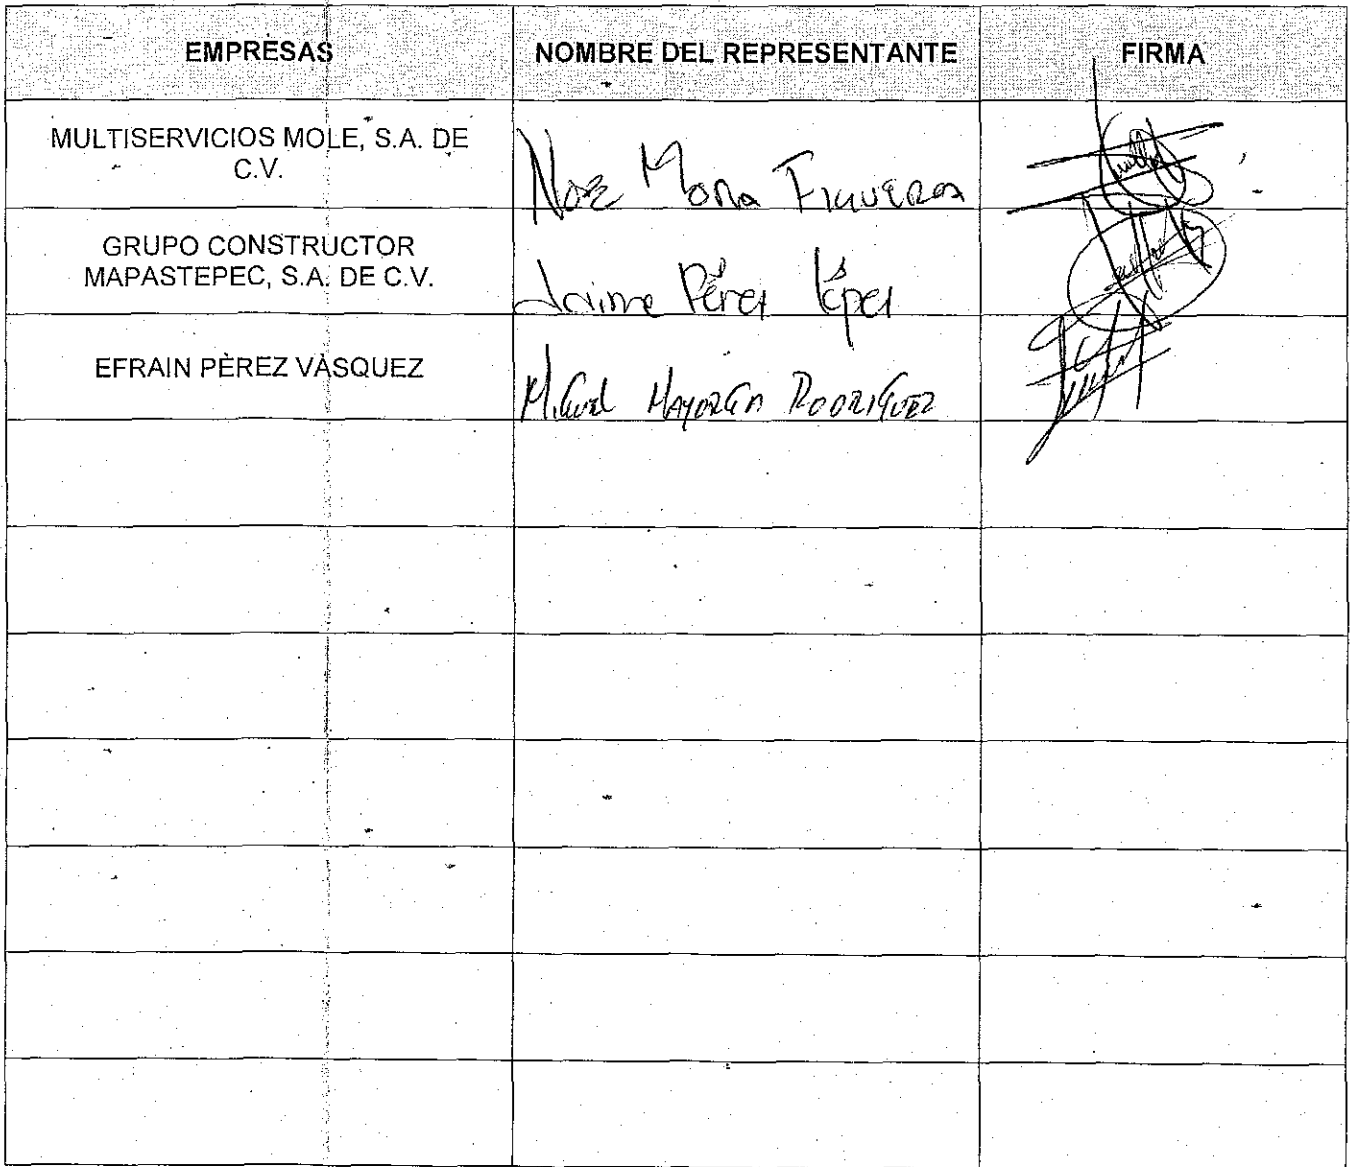 EMPRESAS NOMBRE DEL REPRESENTANTE FIRMA
MULTISERVICIOS MOLE, S.A. DE
C.V.
Noe Mora Figueroa
GRUPO CONSTRUCTOR
MAPASTEPEC, S.A. DE C.V.
Jaime Pérez
EFRAIN PÈREZ VÀSQUEZ
Miguel Mayorga Rodriguez